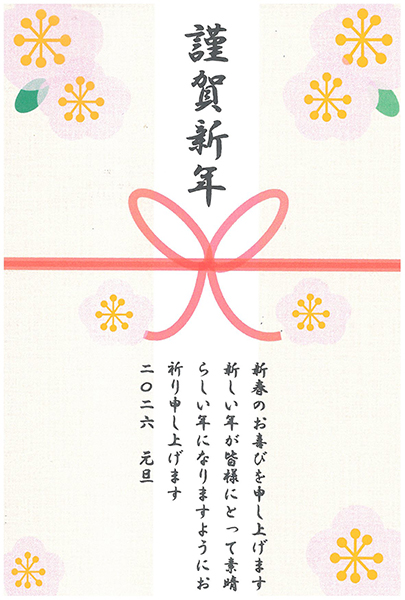 謹賀新年
新春のお喜びを申し上げます
新しい年が皆様にとって素晴
らしい年になりますようにお
祈り申し上げます
二〇二六 元旦